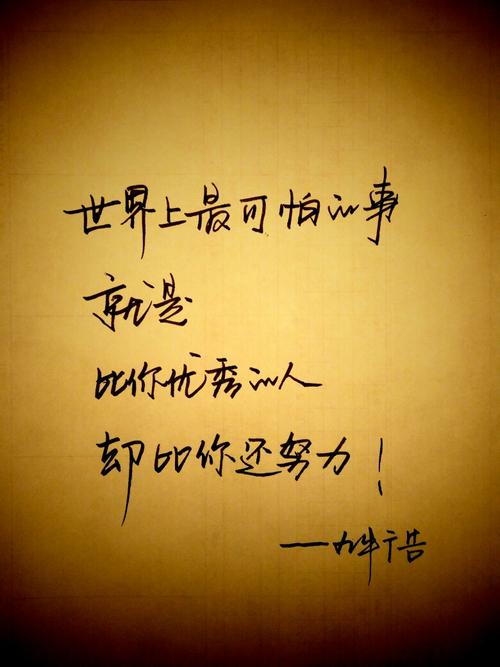 世界上最可怕的事
就是
比你优秀的人
却比你还努力！
——